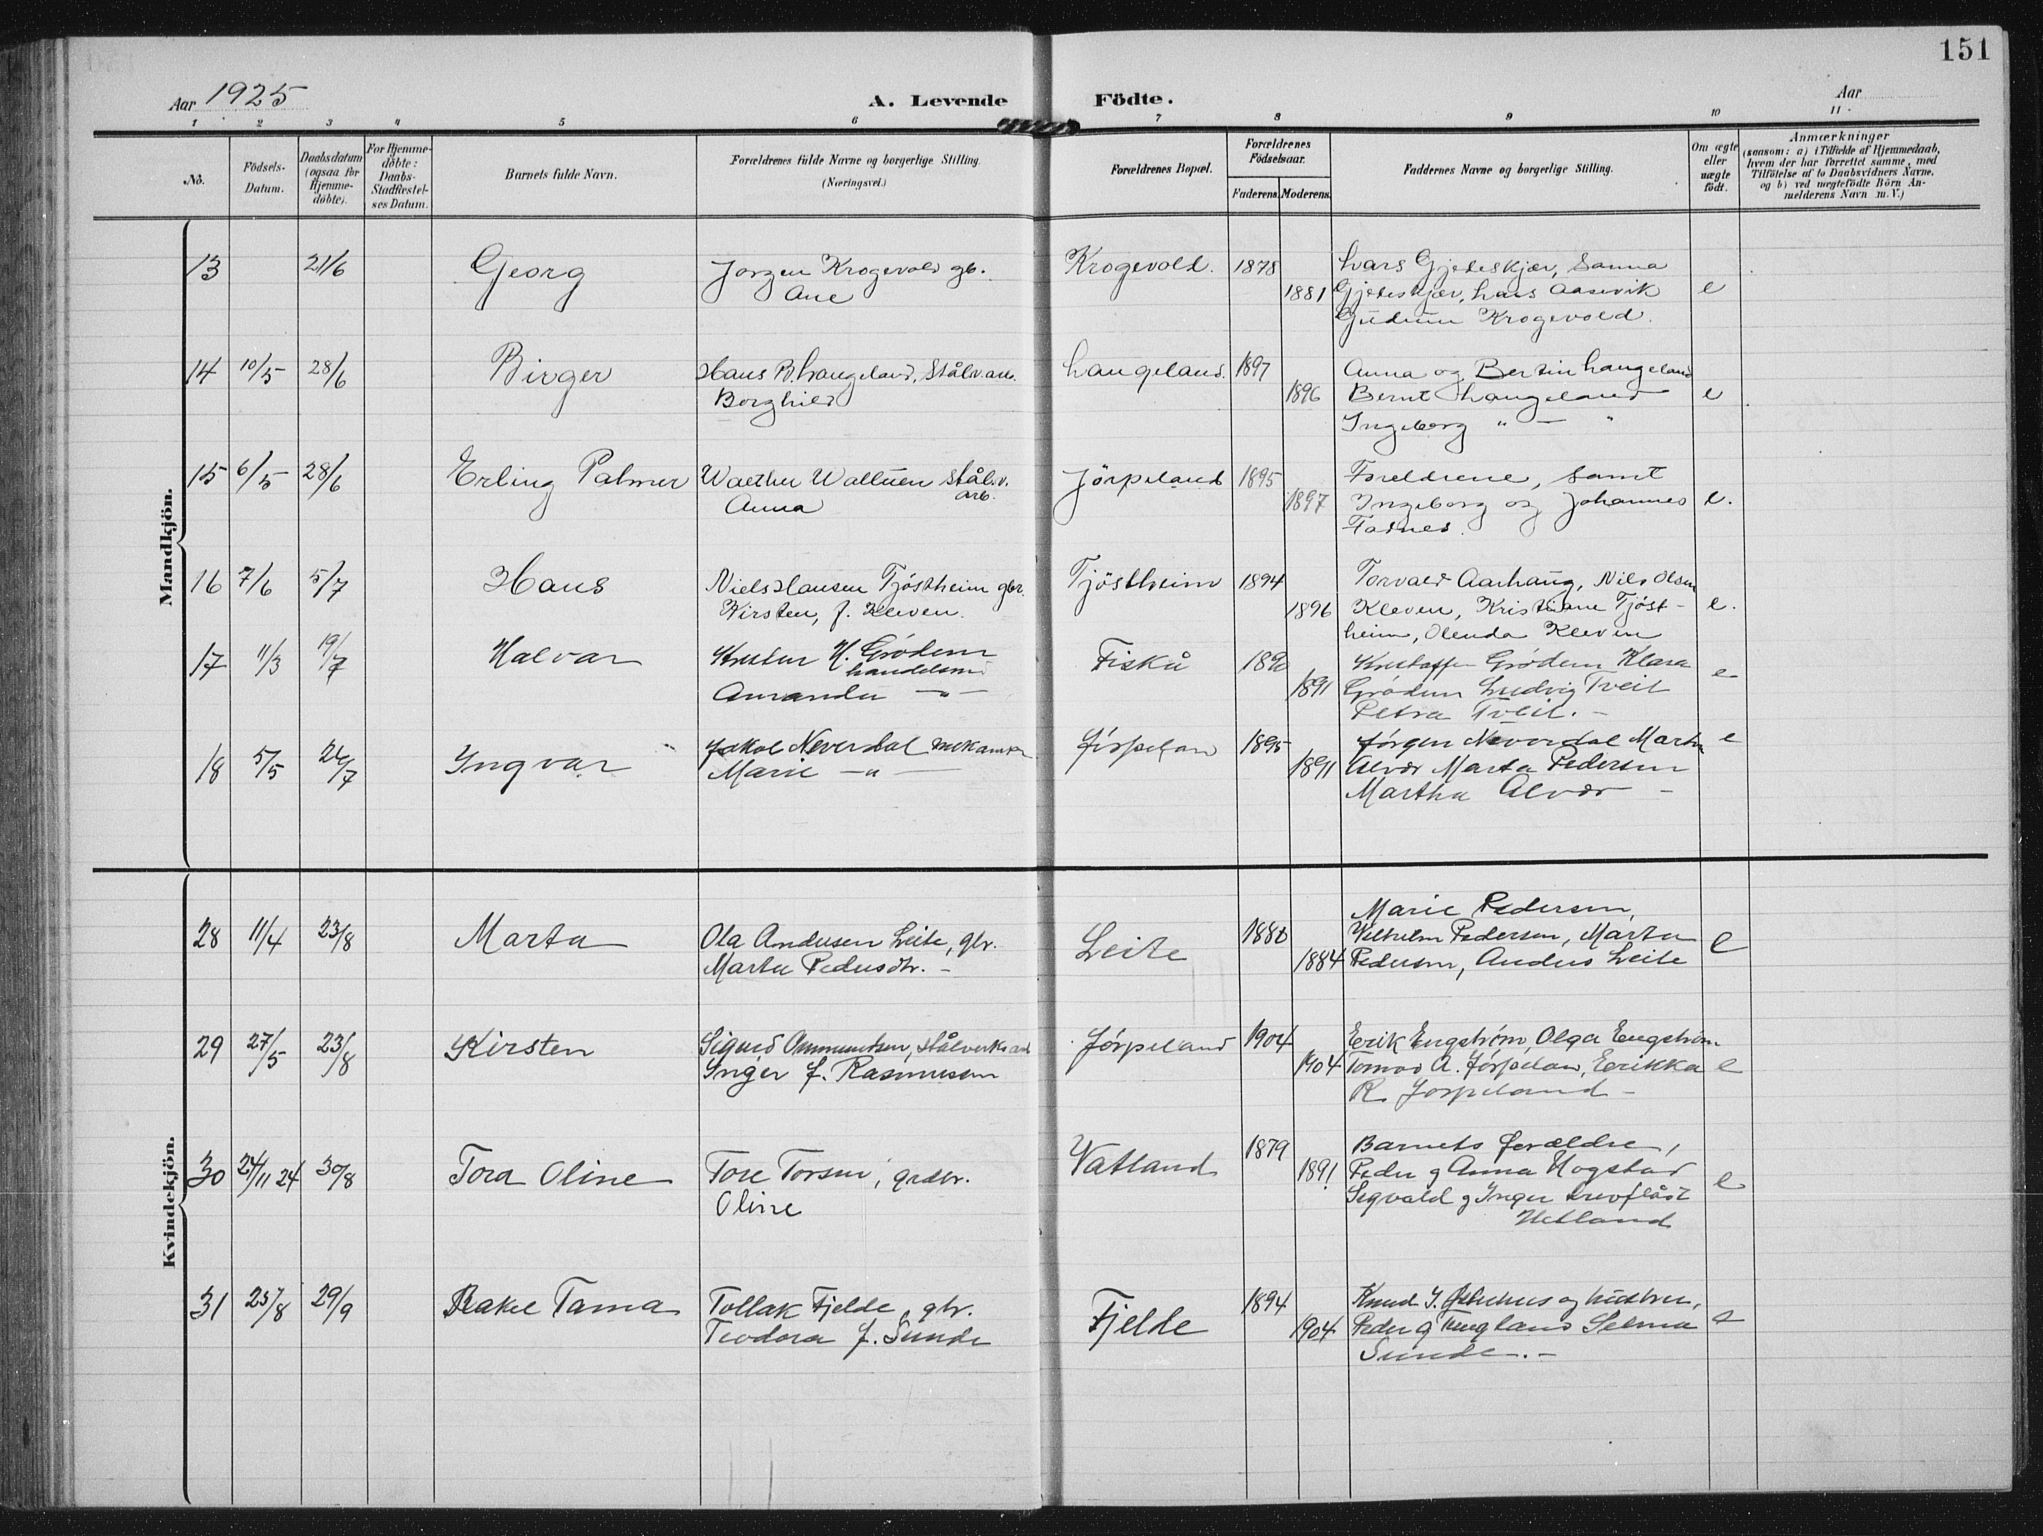 151
Aar 1925
A. Levende Födte.
Aar
1 2 3 4 5 6 7 8 9 10 11
No.
Födsels-Datum.
Daabsdatum (ogsaa for Hjemme-döbte).
For Hjemme-döbte: Daabs-Stadfestel-ses Datum.
Barnets fulde Navn.
Forældrenes fulde Navne og borgerlige Stilling.
(Næringsvei.)
Forældrenes Bopæl.
Forældrenes Födselsaar.
Faderens. Moderens.
Faddernes Navne og borgerlige Stilling.
Om ægte eller uægte födt.
Anmærkninger
(saasom: a) i Tilfælde af Hjemmedaab,
hvem der har forrettet samme, med
Tilföielse af to Daabsvidners Navne,
og b) ved uægtefödte Börn An-
melderens Navn m. V.)
Mandkjön.
13 21/6 Georg Jorgen Krogevold gb. Krogevold. 1878 Lars Gjedeskjær, Sanna
Ane 1881 Gjedeskjær, Lars Aasevik e
Gudrun Krogevold.
14 10/5 28/6 Birger Hans B. Langeland, Stålv. arb. Langeland. 1897 Anna og Bertin Langeland
Borghild 1896 Bernt Langeland e
Ingeborg " — "
15 6/5 28/6 Erling Palmer Walther Stålv. Jørpeland 1895 Foreldrene, samt
Anna arb. 1897 Ingeborg og Johannes e.
Fadnes.
16 7/6 5/7 Hans Niels Hansen Tjöstheim gbr. Tjöstheim 1894 Torvald Aarhaug, Nils Olsen
Kirsten, f. Kleven. 1896 Kleven, Kristiane Tjöst- e.
heim, Olenda Kleven
17 11/3 19/7 Halvar H. Grödem Fiskå 1890 Kristoffer Grödem Klara
handelsm 1891 Grödem Ludvig Tveit e
Amanda — " — Petra Tveit. –
18 5/5 26/7 Ingvar Jakob Neverdal mekaniker Jørpelan 1895 Jørgen Neverdal Marta e
Marie — " — 1891 Alvær Marta Pedersen
Martha Alvær –
Kvindekjön.
28 11/4 23/8 Marta Ola Andersen Leite, gbr. Leite 1880 Marie Pedersen,
Vilhelm Pedersen, Marta e
Marta Pedersdtr. – 1884 Pedersen, Anders Leite
29 27/5 23/8 Kirsten Sigurd Ommundsen, stålverksarb Jørpeland 1904 Erik Engström, Olga Engström
Inger f. Rasmussen 1904 A. Jørpelan, Erikka e
R. Jørpeland –
30 24/11 24 30/8 Tora Oline Tore Torsen, grdbr. Vatland 1879 Barnets forældre,
Oline 1891 Peder g Anna Hogstad
Sigvald g Inger e
Hetland
31 25/8 29/9 Rakel Tama Tollak Fjelde, gbr. Fjelde 1894 Knud J. og hustru,
Teodora f. Sunde 1904 Peder g Selma e
Sunde. –